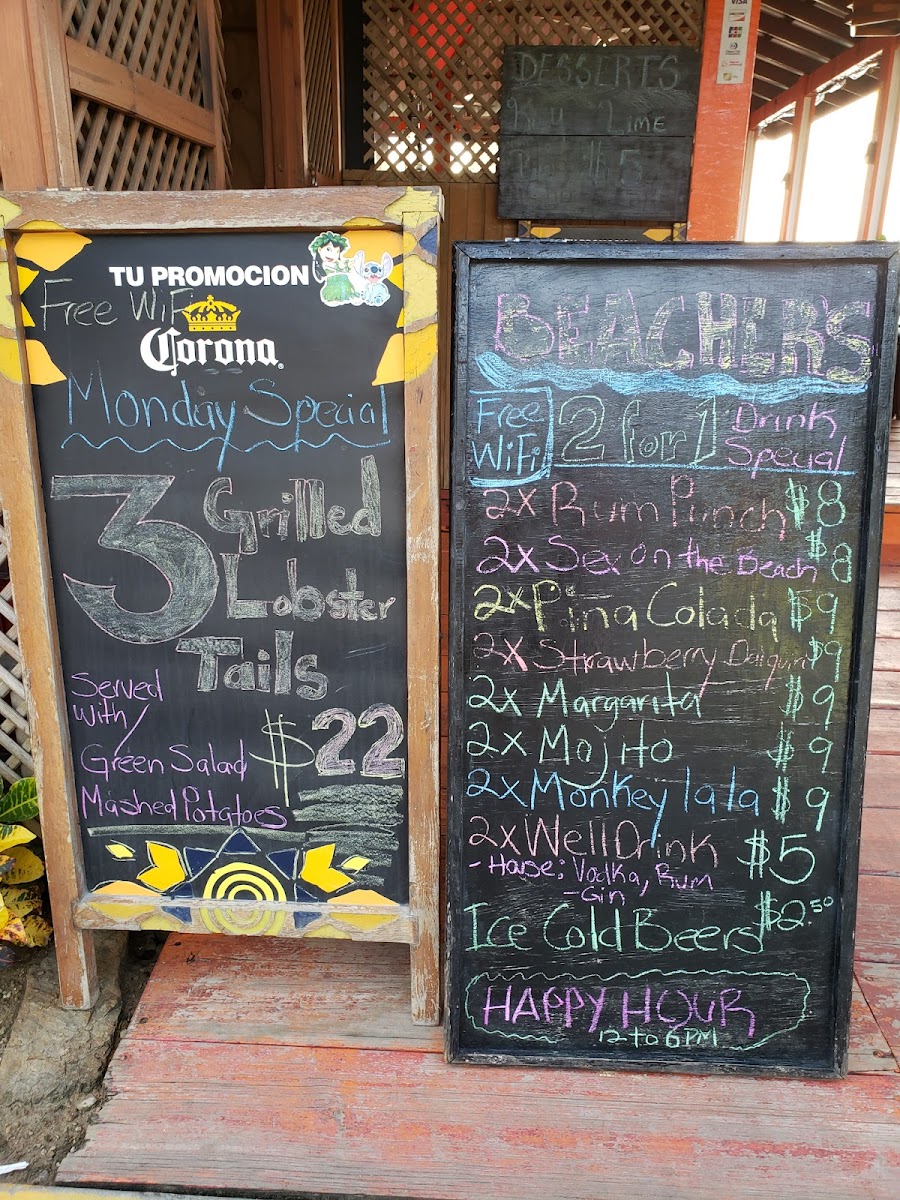 VISA
DESSERTS
Key Lime
$5
TU PROMOCION
Free WiFi
Corona
Monday Special
3 Grilled
Lobster
Tails
Served
with/
Green Salad
Mashed Potatoes
$22
BEACHER'S
Free
WiFi
2 for 1
Drink
Special
2x Rum Punch $8
2x Sex on the Beach $8
2x Pina Colada $9
2x Strawberry Daiquiri $9
2x Margarita $9
2x Mojito $9
2x Monkey lala $9
2x Well Drink $5
- House: Vodka, Rum
- Gin
Ice Cold Beers $2.50
HAPPY HOUR
12 to 6 PM